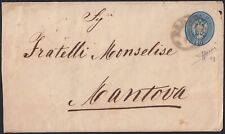 Sig
Fratelli Monselise
Mantova